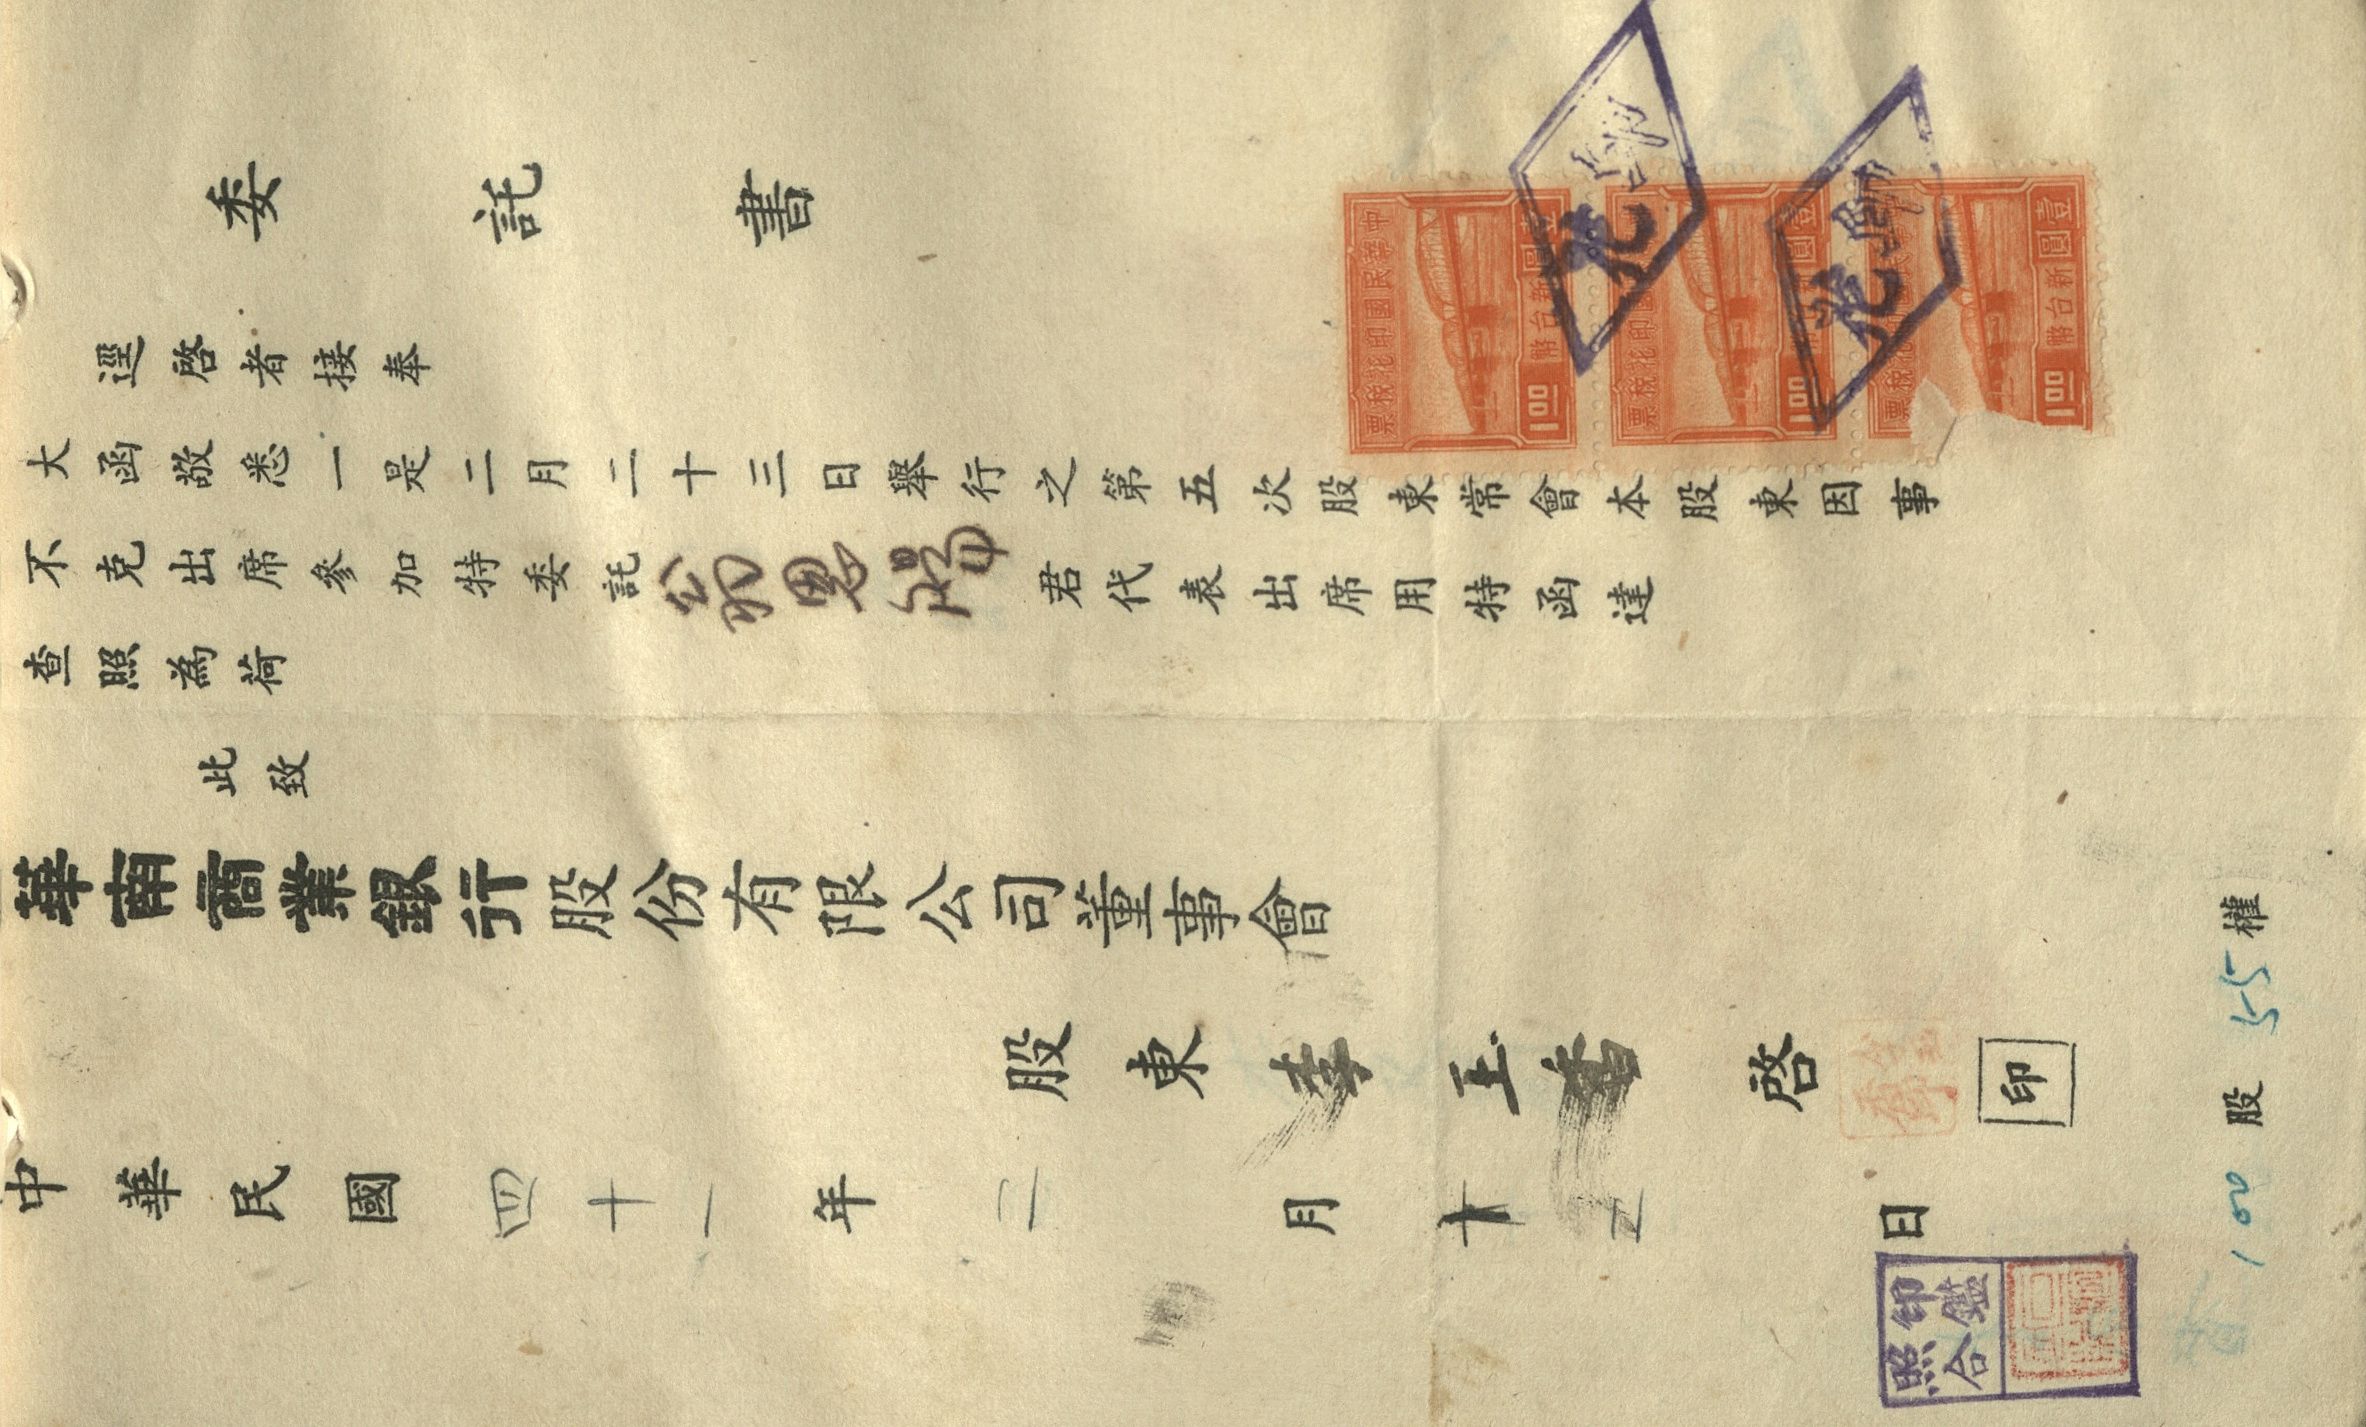 委託書
逕啓者接奉
大函敬悉一是二月二十三日舉行之第五次股東常會本股東因事
不克出席參加特委託翁恩
君代表出席用特函達
查照為荷
此致
華南商業銀行股份有限公司董事會
股東李玉 啓
印
中華民國四十一年二月十 日
100股 55權
中華民國印花稅票
壹圓
新台幣
1.00
壹圓
1.00
壹圓
新台幣
1.00
印鑑
照合